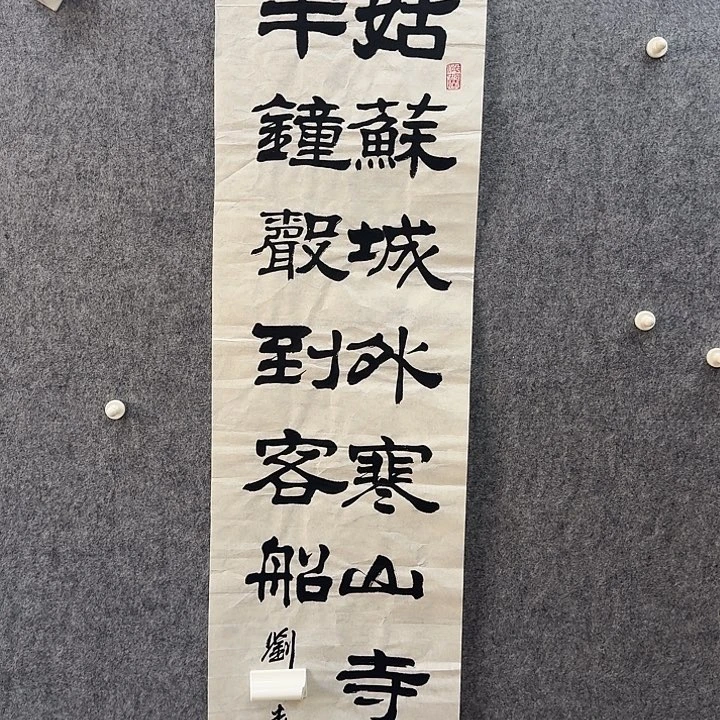 姑蘇城外寒山寺
半鐘聲到客船
劉